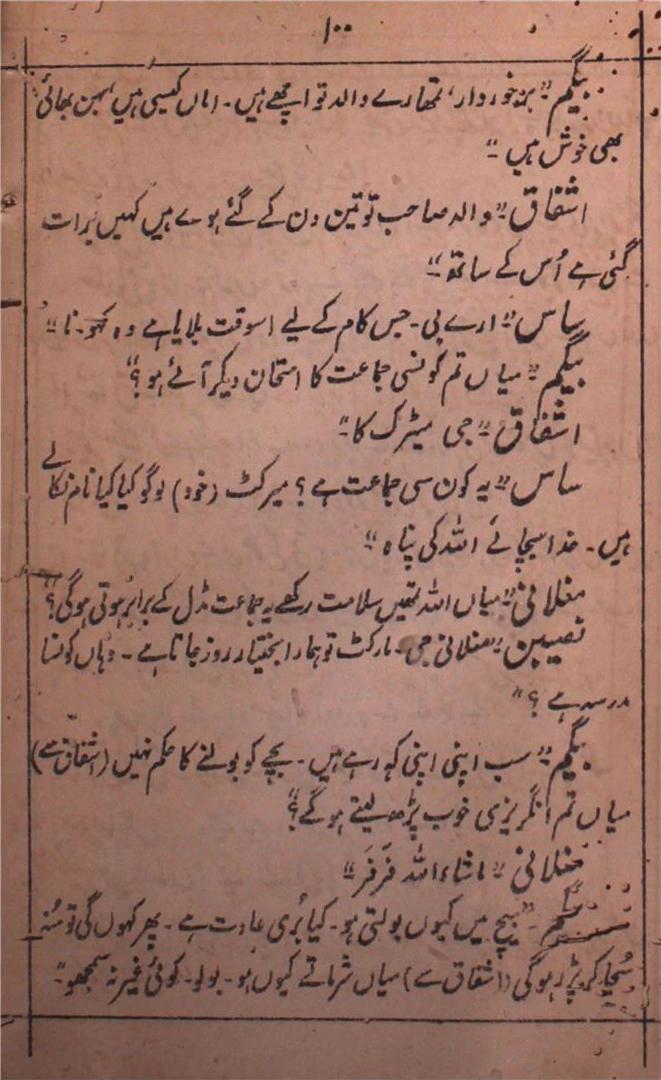 ۱۰۰
بیگم "برخوردار، تمھارے والد تو اچھے ہیں۔ اماں کیسی ہیں بہن بھائی
بھی خوش ہیں"
اشفاق "والد صاحب تو تین دن کے گئے ہوے ہیں کہیں برات
گئی ہے اُس کے ساتھ"
ساس "ارے بی۔ جس کام کے لیے اسوقت بلایا ہے وہ کہو۔ نا"
بیگم "میاں تم کونسی جماعت کا امتحان دیکر آئے ہو؟"
اشفاق "جی میٹرک کا"
ساس "یہ کون سی جماعت ہے؟ میرکٹ (خود) لوگو کیا کیا نام نکالے
ہیں۔ خدا بچائے اللہ کی پناہ"
مغلانی "میاں اللہ تمھیں سلامت رکھے یہ جماعت مڈل کے برابر ہوتی ہوگی؟"
نصیبن "مغلانی جی۔ مارکٹ تو ہمارا بختیار روز جاتا ہے۔ وہاں کونسا
مدرسہ ہے؟"
بیگم "سب اپنی اپنی کہہ رہے ہیں۔ بچے کو بولنے کا حکم نہیں (اشفاق سے)
میاں تم انگریزی خوب پڑھ لیتے ہوگے؟"
مغلانی "ماشاءاللہ فَرفَر"
بیگم۔ "بیچ میں کیوں بولتی ہو۔ کیا بُری عادت ہے۔ پھر کہوں گی تو مُنہ
سُجا کر پڑ رہو گی (اشفاق سے) میاں شرماتے کیوں ہو۔ بولو۔ کوئی غیر نہ سمجھو"